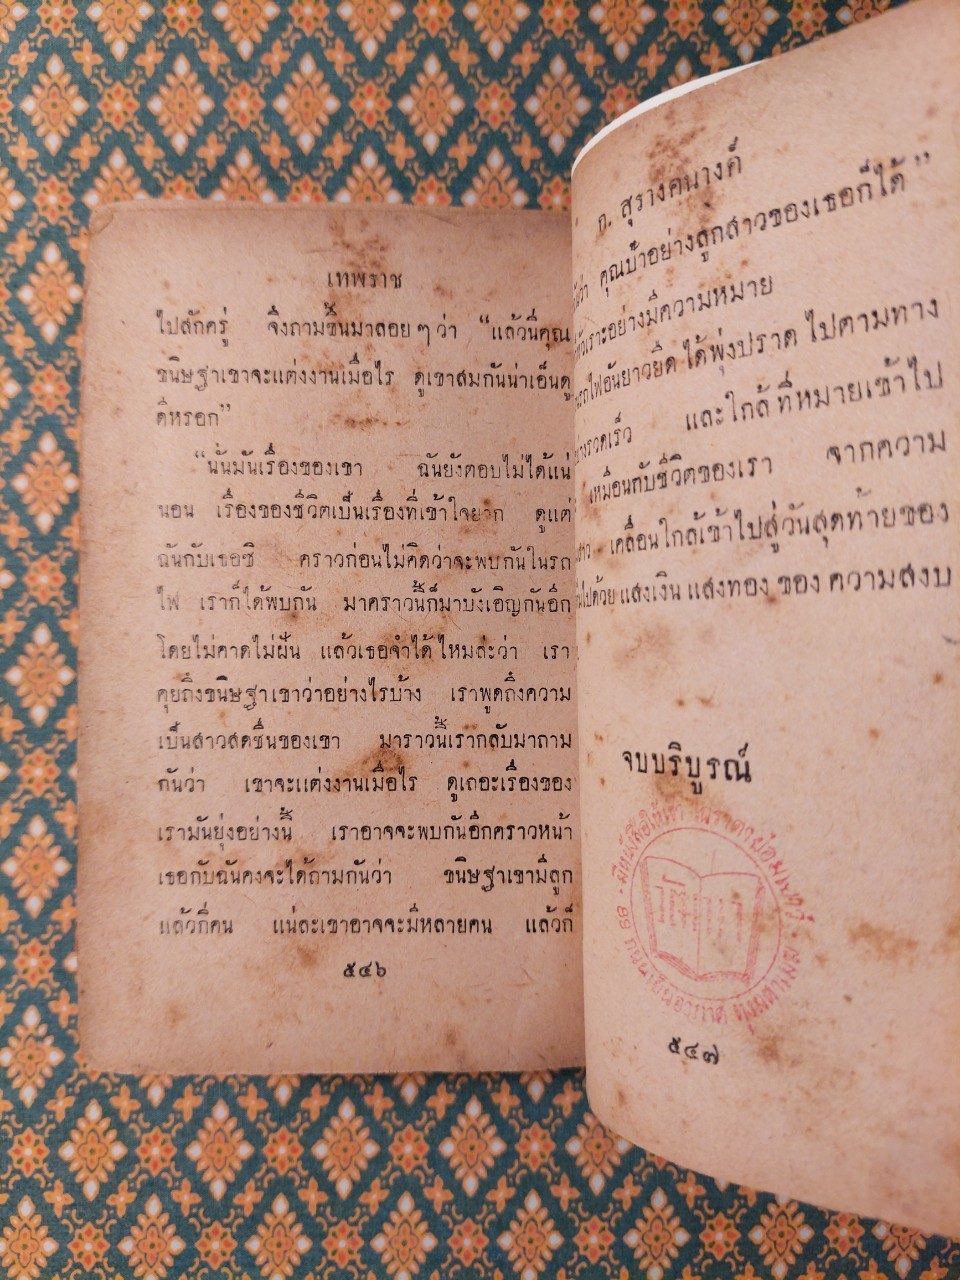 เทพราช
ไปสักครู่ จึงถามขึ้นมาลอย ๆ ว่า “แล้วนี่คุณ
ขนิษฐาเขาจะแต่งงานเมื่อไร ดูเขาสมกันน่าเอ็นดู
ดีหรอก”
“นั่นมันเรื่องของเขา ฉันยังตอบไม่ได้แน่
นอน เรื่องของชีวิตเป็นเรื่องที่เข้าใจยาก ดูแต่
ฉันกับเธอซิ คราวก่อนไม่คิดว่าจะพบกันในรถ
ไฟ เราก็ได้พบกัน มาคราวนี้ก็มาบังเอิญกันอีก
โดยไม่คาดไม่ฝัน แล้วเธอจำได้ไหมล่ะว่า เรา
คุยถึงขนิษฐาเขาว่าอย่างไรบ้าง เราพูดถึงความ
เป็นสาวสดชื่นของเขา มาราวนี้เรากลับมาถาม
กันว่า เขาจะแต่งงานเมื่อไร ดูเถอะเรื่องของ
เรามันยุ่งอย่างนี้ เราอาจจะพบกันอีกคราวหน้า
เธอกับฉันคงจะได้ถามกันว่า ขนิษฐาเขามีลูก
แล้วกี่คน แน่ละเขาอาจจะมีหลายคน แล้วก็
๕๔๖
ก. สุรางคนางค์
คุณป้าอย่างลูกสาวของเธอก็ได้”
อย่างมีความหมาย
รถไฟอันยาวยืด ได้พุ่งปราด ไปตามทาง
รวดเร็ว และใกล้ที่หมายเข้าไป
เหมือนกับชีวิตของเรา จากความ
เคลื่อนใกล้เข้าไปสู่วันสุดท้ายของ
ไปด้วย แสงเงิน แสงทอง ของ ความสงบ
จบบริบูรณ์
๕๔๗